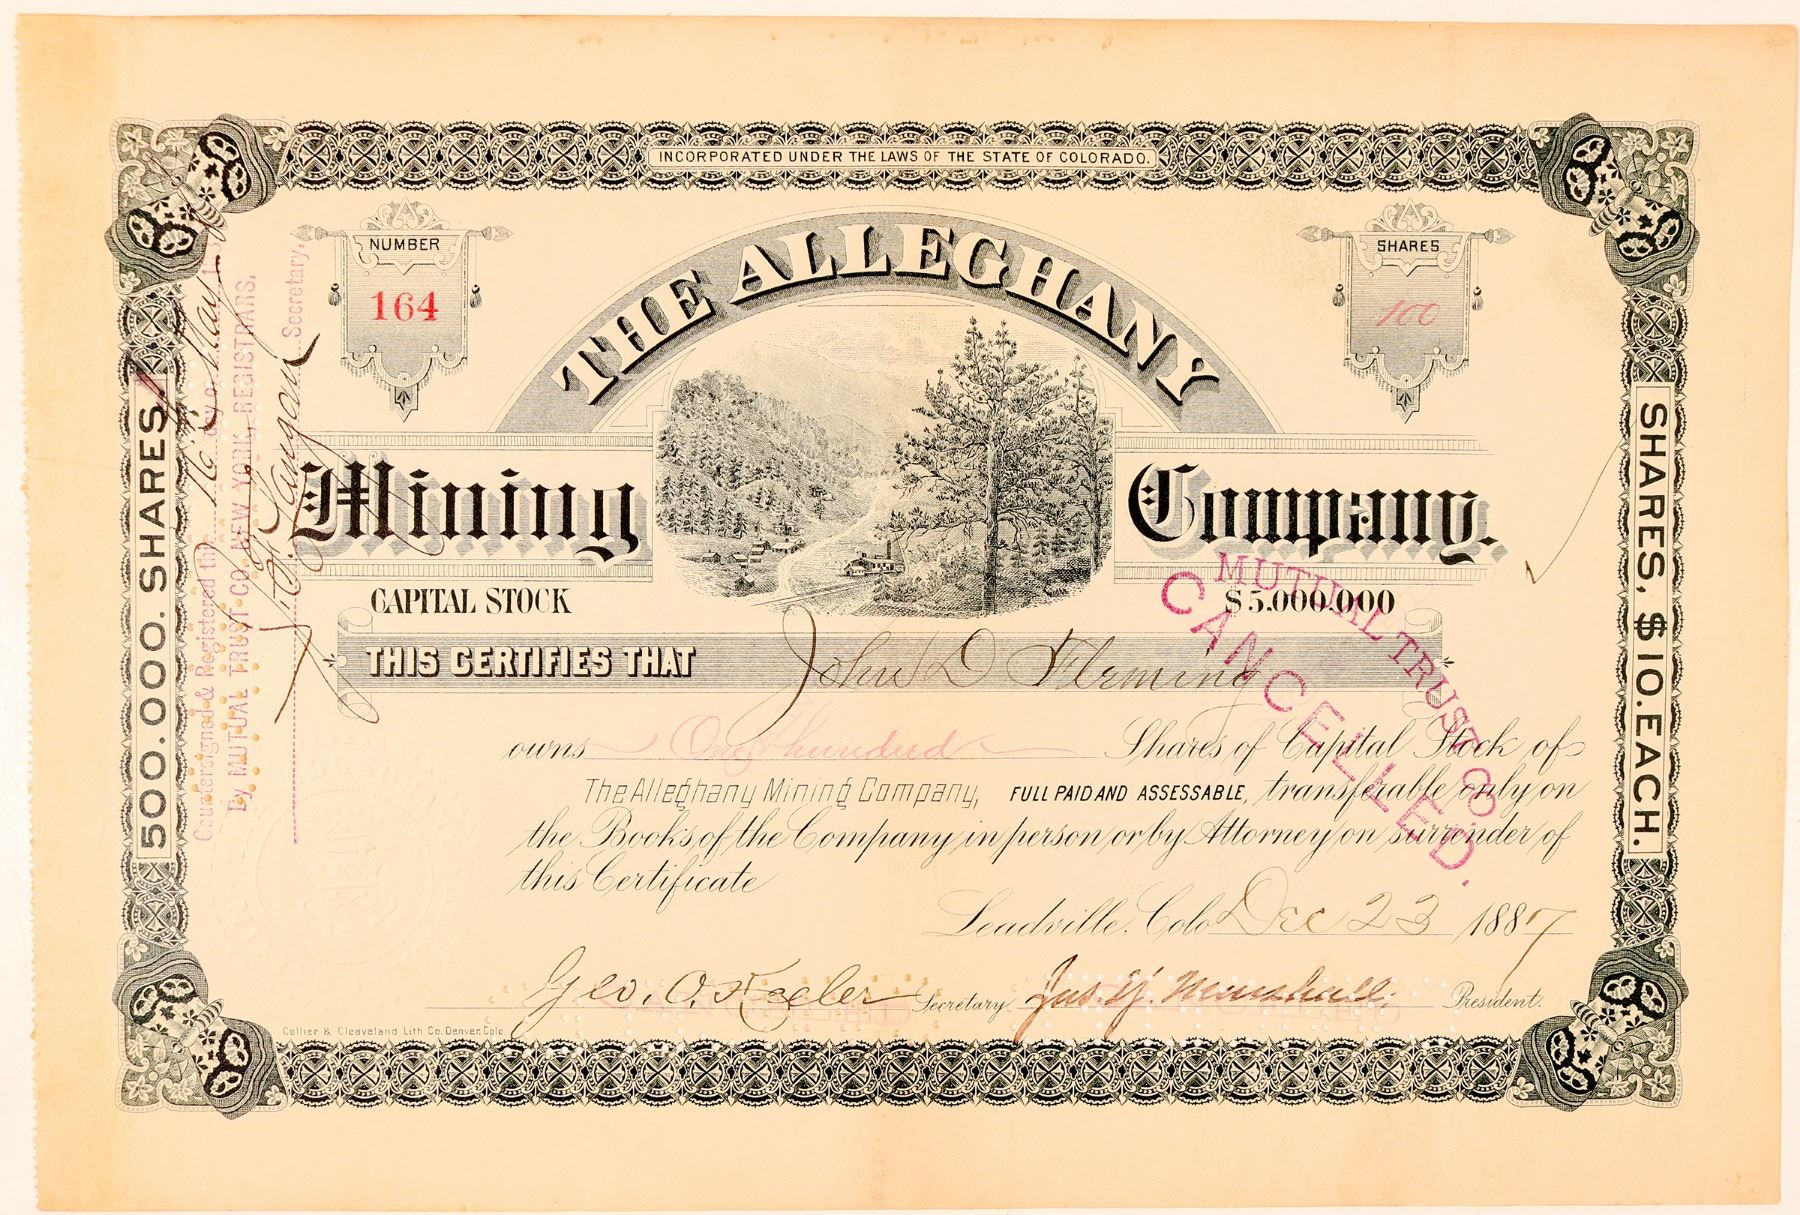 INCORPORATED UNDER THE LAWS OF THE STATE OF COLORADO.
NUMBER
164
SHARES
100
THE ALLEGHANY
Mining Company.
CAPITAL STOCK $5.000.000
THIS CERTIFIES THAT John D Fleming
owns One hundred Shares of Capital Stock of
The Alleghany Mining Company, FULL PAID AND ASSESSABLE, transferable only on
the Books of the Company in person or by Attorney on surrender of
this Certificate
Leadville, Colo Dec 23 1887
Geo. O. Keeler Secretary. Jas. Y. Marshall. President.
Collier & Cleaveland Lith Co. Denver, Colo
500.000. SHARES.
SHARES, $10. EACH.
Countersigned & Registered the 16 day of
By MUTUAL TRUST CO. NEW YORK, REGISTRARS.
Secretary.
MUTUAL TRUST CO.
CANCELLED.